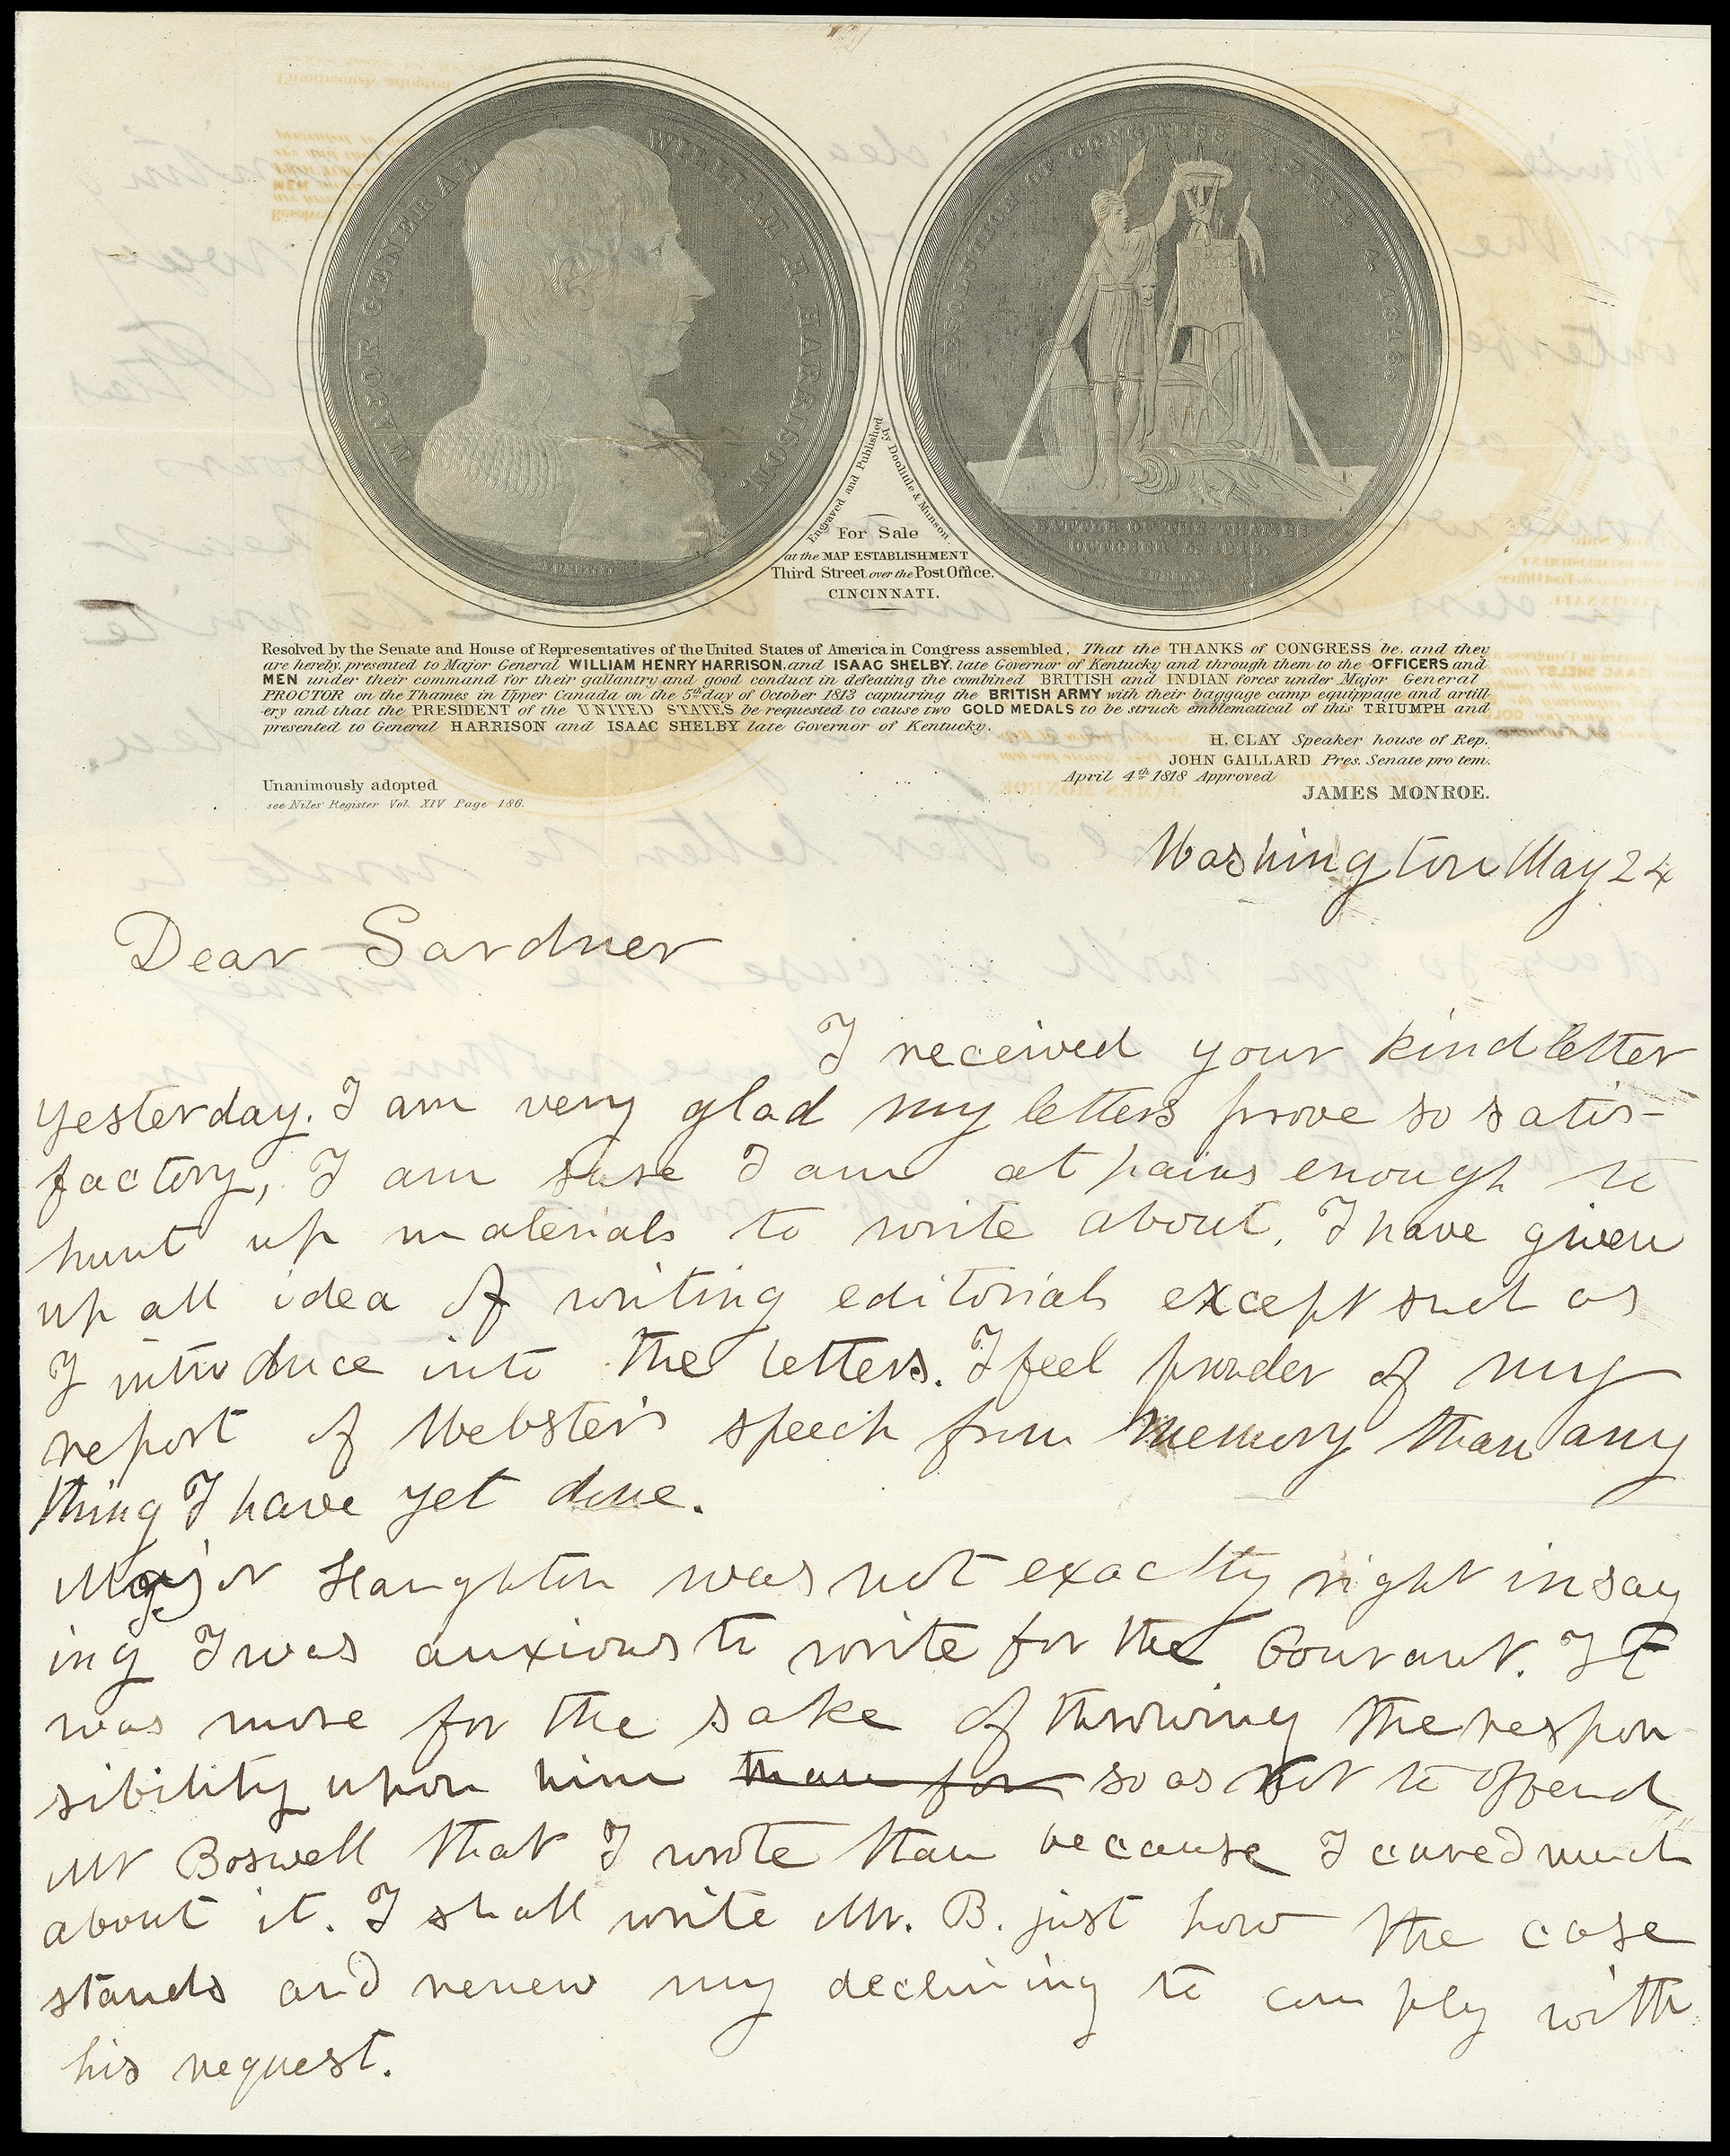 MAJOR GENERAL WILLIAM H. HARRISON.
RESOLUTION OF CONGRESS APRIL 4. 1818.
BATTLE OF THE THAMES
OCTOBER 5. 1813.
Engraved and Published
by Doolittle & Munson.
For Sale
at the MAP ESTABLISHMENT
Third Street over the Post Office.
CINCINNATI.
Resolved by the Senate and House of Representatives of the United States of America in Congress assembled, That the THANKS of CONGRESS be, and they
are hereby, presented to Major General WILLIAM HENRY HARRISON, and ISAAC SHELBY, late Governor of Kentucky and through them to the OFFICERS and
MEN under their command for their gallantry and good conduct in defeating the combined BRITISH and INDIAN forces under Major General
PROCTOR on the Thames in Upper Canada on the 5th day of October 1813 capturing the BRITISH ARMY with their baggage camp equippage and artill
-ery and that the PRESIDENT of the UNITED STATES be requested to cause two GOLD MEDALS to be struck emblematical of this TRIUMPH and
presented to General HARRISON and ISAAC SHELBY late Governor of Kentucky.
H. CLAY Speaker house of Rep.
JOHN GAILLARD Pres. Senate pro tem.
Unanimously adopted
April 4th 1818 Approved
see Niles' Register Vol. XIV Page 186.
JAMES MONROE.
Washington May 24
Dear Gardner
I received your kind letter
yesterday. I am very glad my letters prove so satis-
factory, I am sure I am at pains enough to
hunt up materials to write about. I have given
up all idea of writing editorials except such as
I introduce into the letters. I feel prouder of my
report of Webster's speech from memory than any
thing I have yet done.
Major Haughton was not exactly right in say
ing I was anxious to write for the Courant. It
was more for the sake of throwing the respon-
sibility upon him than for so as not to offend
Mr Boswell that I wrote than because I cared much
about it. I shall write Mr. B. just how the case
stands and renew my declining to comply with
his request.